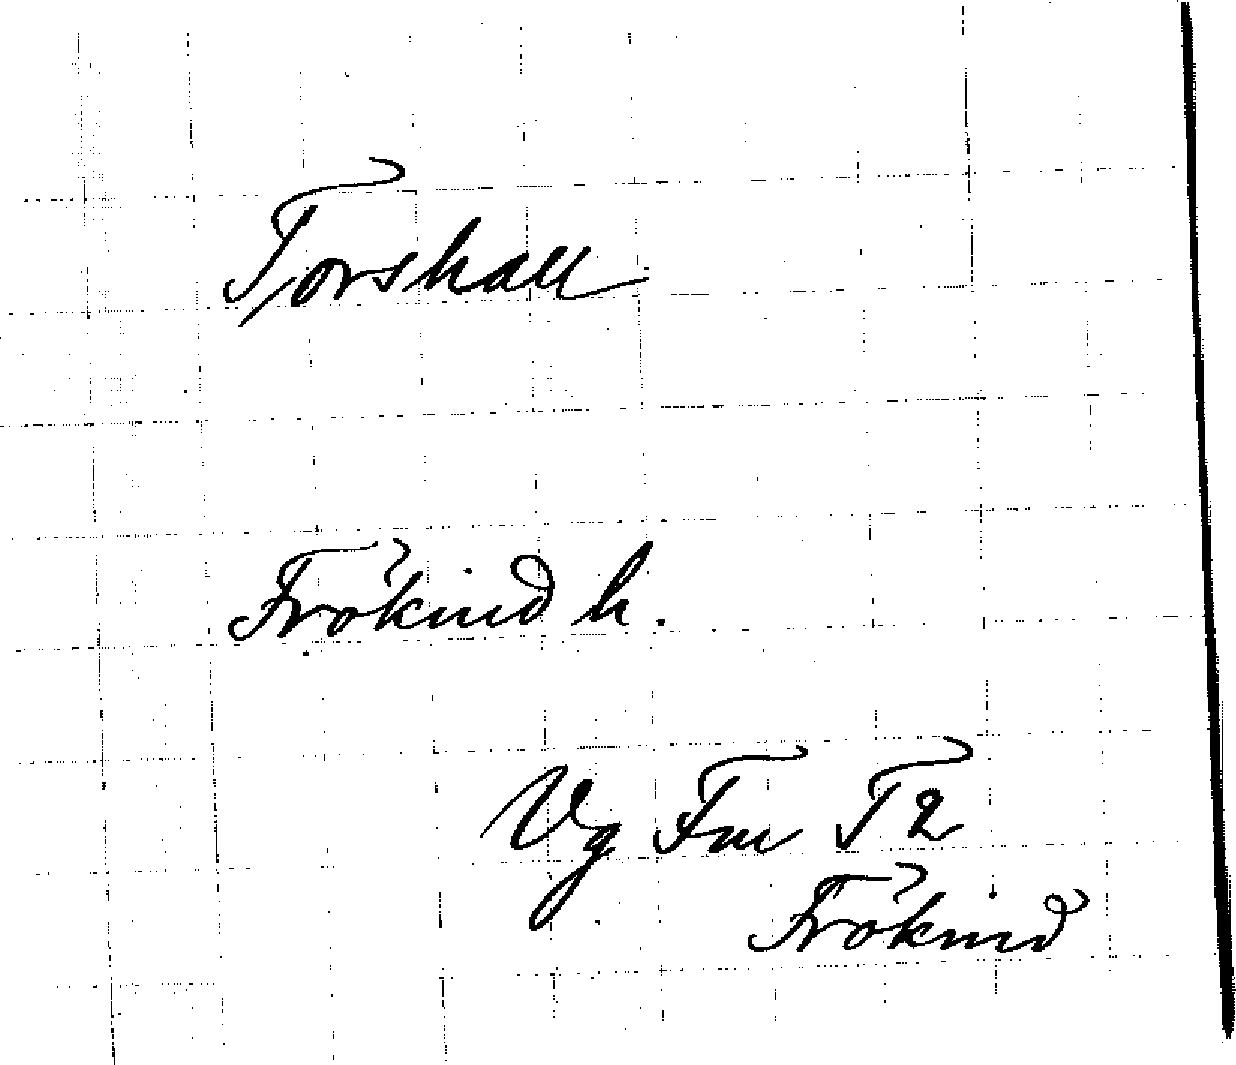 Torshall
Frökind h.
Vg Fm T2
Frökind